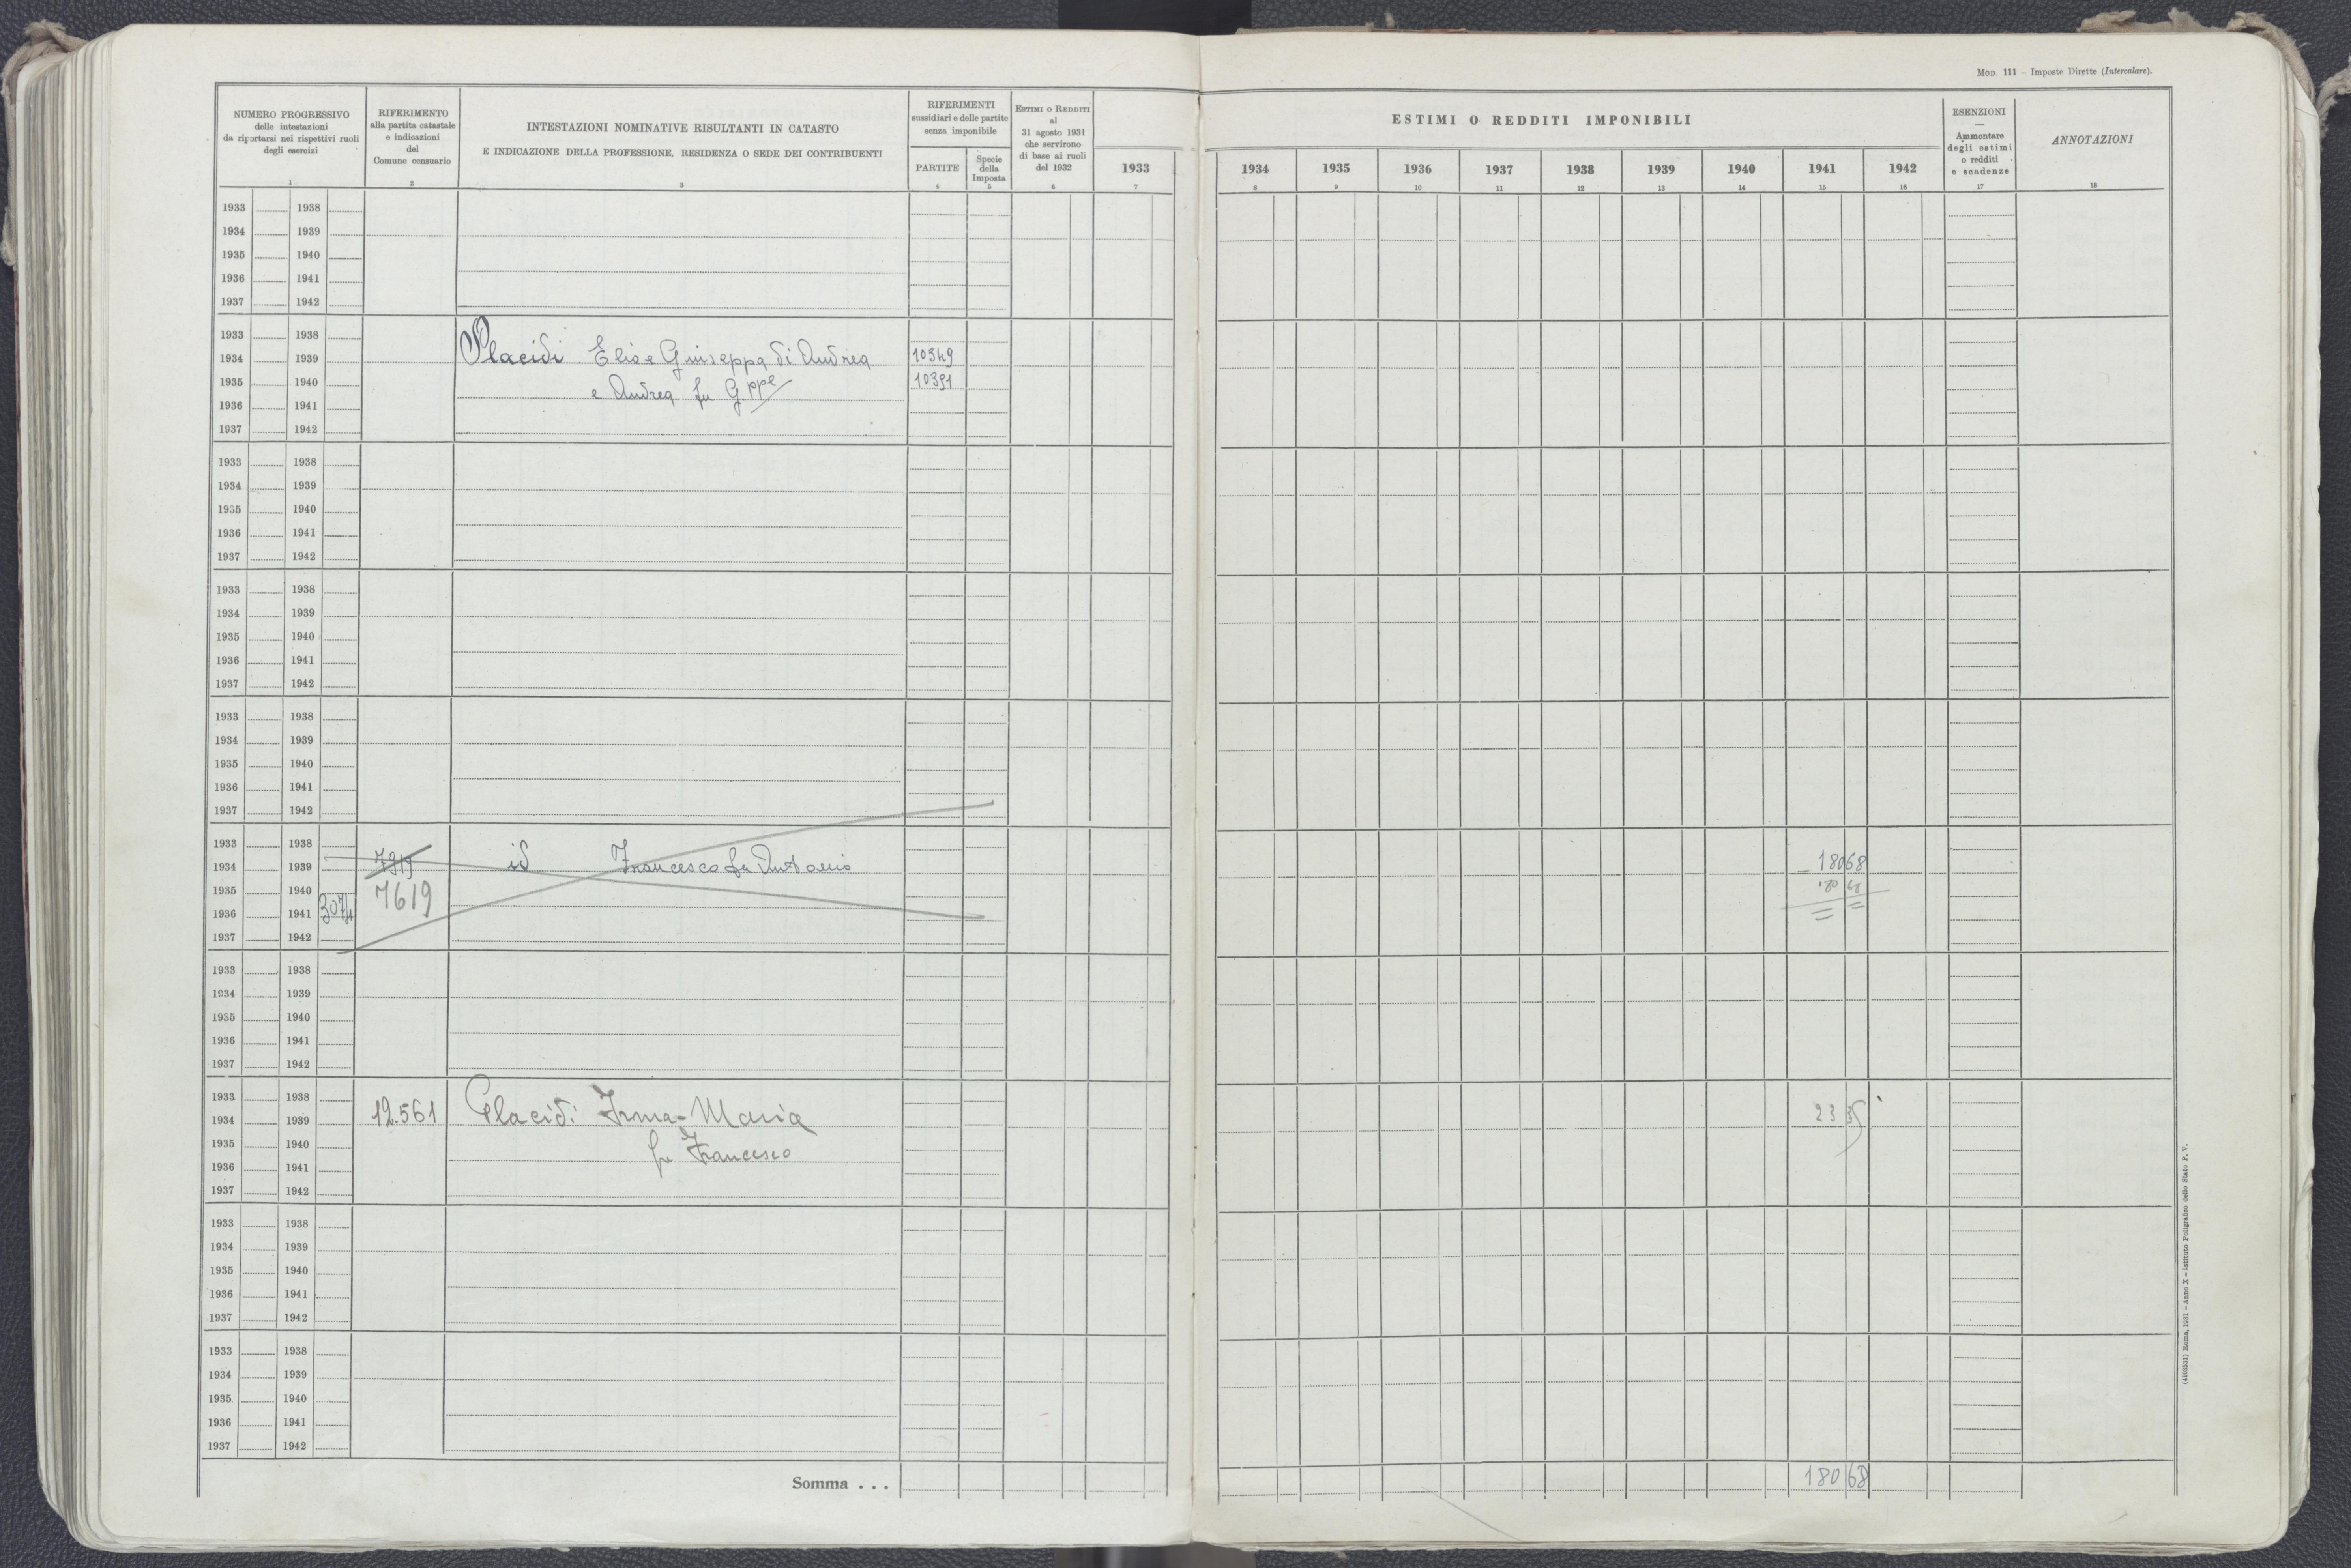 MOD. 111 – Imposte Dirette (Intercalare).
NUMERO PROGRESSIVO
delle intestazioni
da riportarsi nei rispettivi ruoli
degli esercizi
1
RIFERIMENTO
alla partita catastale
e indicazioni
del
Comune censuario
2
INTESTAZIONI NOMINATIVE RISULTANTI IN CATASTO
E INDICAZIONE DELLA PROFESSIONE, RESIDENZA O SEDE DEI CONTRIBUENTI
3
RIFERIMENTI
sussidiari e delle partite
senza imponibile
PARTITE
4
Specie
della
Imposta
5
ESTIMI O REDDITI
al
31 agosto 1931
che servirono
di base ai ruoli
del 1932
6
1933
7
ESTIMI O REDDITI IMPONIBILI
1934 1935 1936 1937 1938 1939 1940 1941 1942
8 9 10 11 12 13 14 15 16
ESENZIONI
—
Ammontare
degli estimi
o redditi
e scadenze
17
ANNOTAZIONI
18
1933 1938
1934 1939
1935 1940
1936 1941
1937 1942
1933 1938
1934 1939 Placidi Elio e Giuseppa di Andrea 10349
1935 1940 e Andrea fu G.ppe 10391
1936 1941
1937 1942
1933 1938
1934 1939
1935 1940
1936 1941
1937 1942
1933 1938
1934 1939
1935 1940
1936 1941
1937 1942
1933 1938
1934 1939
1935 1940
1936 1941
1937 1942
1933 1938
1934 1939 7919 id Francesco fu Antonio 180 68
1935 1940 7619 180 68
1936 1941 3074
1937 1942
1933 1938
1934 1939
1935 1940
1936 1941
1937 1942
1933 1938
1934 1939 12.561 Placidi Irma-Maria 23 35
1935 1940 fu Francesco
1936 1941
1937 1942
1933 1938
1934 1939
1935 1940
1936 1941
1937 1942
1933 1938
1934 1939
1935 1940
1936 1941
1937 1942
Somma . . . 180 68
Roma, 1931 – Anno X – Istituto Poligrafico dello Stato P. V.